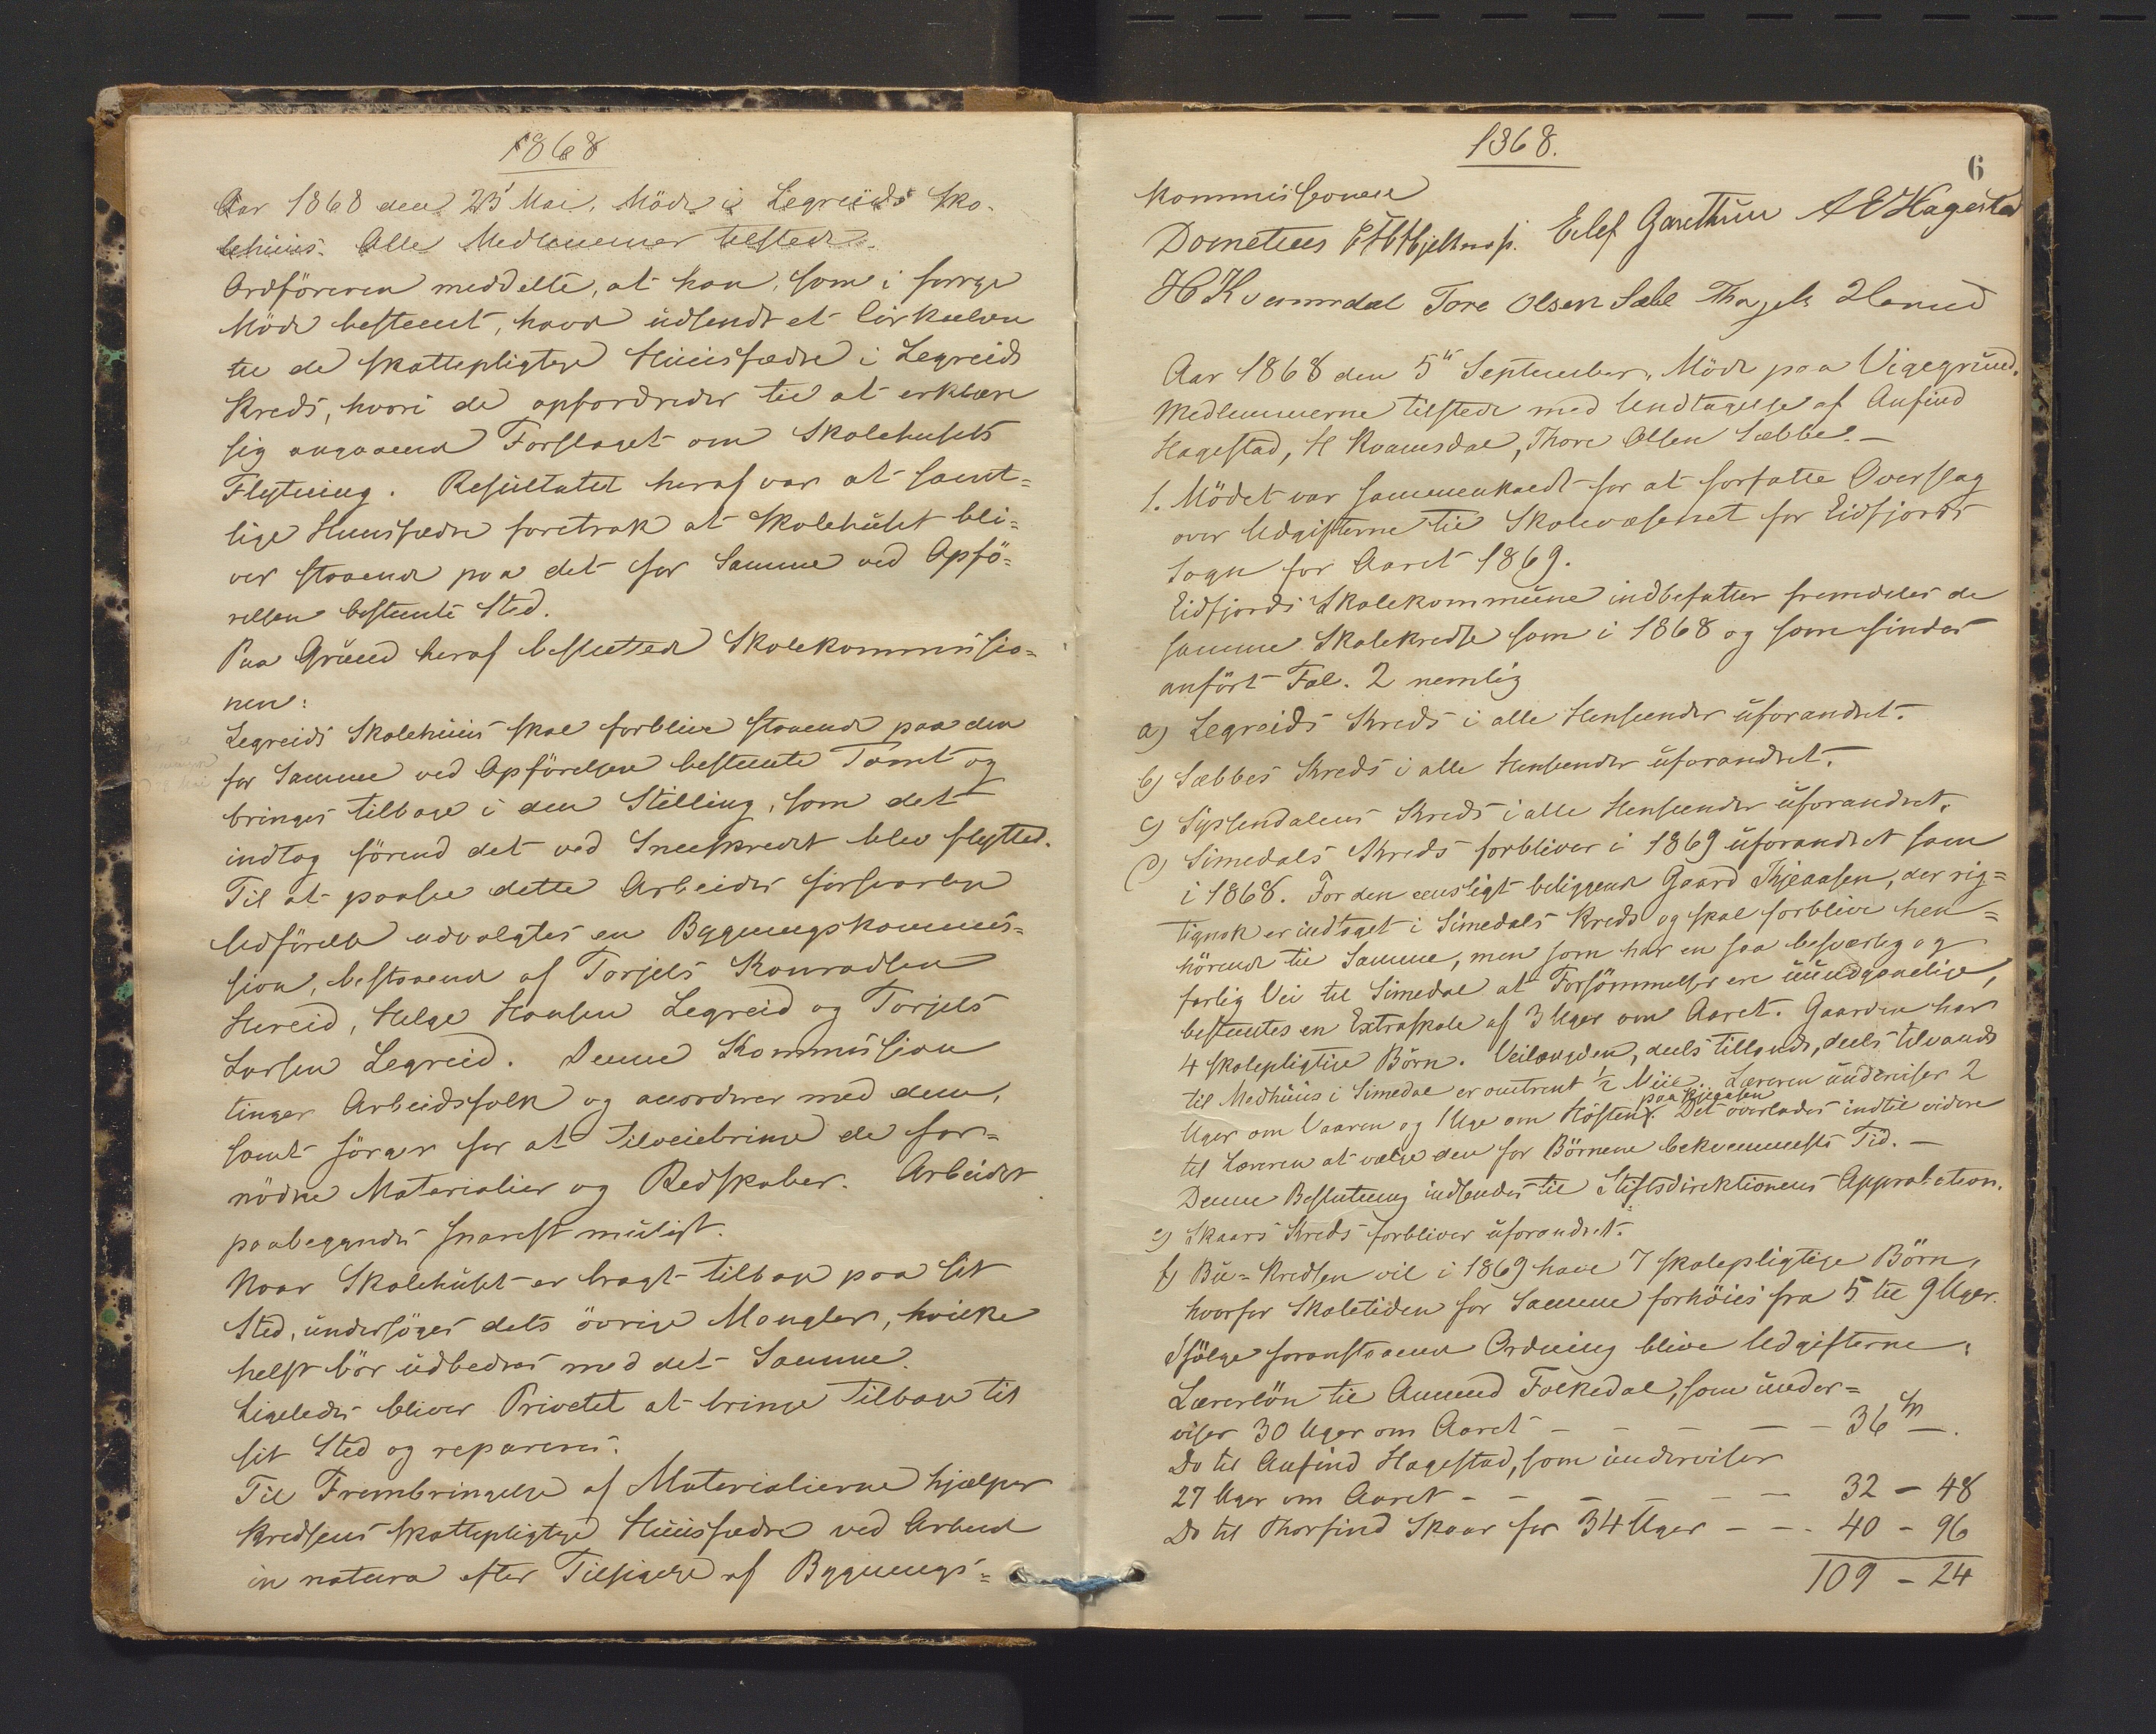 1868
Aar 1868 den 23' Mai, Möde i Legreids Sko-
lehuus. Alle Medlemmer tilstede.
Ordföreren meddelte, at han, som i forrige
Möde bestemt, havde udsendt et Cirkulære
til de skattepligtige Huusfædre i Legreids
Kreds, hvori de opfordredes til at erklære
sig angaaende Forslaget om Skolehusets
Flytning. Resultatet heraf var at samt-
lige Huusfædre foretrak at Skolehuset bli-
ver staaende paa det for Samme ved Opfö-
relsen bestemte Sted.
Paa Grund heraf besluttede Skolekommissio-
nen:
Legreids Skolehuus skal forblive staaende paa den
for Samme ved Opförelsen bestemte Tomt og
bringes tilbage i den Stilling, som det
indtog förend det ved Sneeskredet blev flyttet.
Til at paasee dette Arbeides forsvarlige
Udförelse udvalgtes en Bygningskommis-
sion, bestaaende af Torjels Konradsen
Hereid, Helge Hansen Legreid og Torjels
Larsen Legreid. Denne Kommission
tinger Arbeidsfolk og accorderer med dem,
samt sörger for at tilveiebringe de for-
nödne Materialier og Redskaber. Arbeidet
paabegyndes snarest muligt.
Naar Skolehuset er bragt tilbage paa sit
Sted, undersöges dets övrige Mangler, hvilke
helst bör udbedres med det Samme.
Ligeledes bliver Privetet at bringe tilbage til
sit Sted og repareres.
Til Frembringelse af Materialierne hjælper
Kredsens skattepligtige Huusfædre ved Arbeide
in natura efter Tilsigelse af Bygnings-
1868.
6
Kommissionen
Dometius Hjeltnæs. Eilef Garethun A E Hagestad
H Kvammdal Tore Olsen Sæbe Thorjels Hereid
Aar 1868 den 5te September, Möde paa Vigegrund.
Medlemmerne tilstede med Undtagelse af Anfind
Hagestad, H Kvamsdal, Thore Olsen Sæbbe.—
1. Mödet var sammenkaldt for at forfatte Overslag
over Udgifterne til Skolevæsenet for Eidfjords
Sogn for Aaret 1869.
Eidfjords Skolekommune indbefatter fremdeles de
samme Skolekredse som i 1868 og som findes
anfört Fol. 2 nemlig
a) Legreids Kreds i alle Henseender uforandret.
b) Sæbbes Kreds i alle Henseender uforandret.
c) Syssendalens Kreds i alle Henseender uforandret.
d) Simedals Kreds forbliver i 1869 uforandret som
i 1868. For den eensligt beliggende Gaard Kjeaasen, der rig-
tignok er indtaget i Simedals Kreds og skal forblive hen-
hörende til Samme, men som har en saa besværlig og
farlig Vei til Simedal at Forsömmelser ere uundgaaelige,
bestemtes en Extraskole af 3 Uger om Aaret. Gaarden har
4 skolepligtige Börn. Veilængden, deels tillands, deels tilvands
til Medhuus i Simedal er omtrent ½ Miil. Læreren underviser 2
Uger om Vaaren og 1 Uge om Hösten paa Kjeaasen. Det overlades indtil videre
til Læreren at vælge den for Börnene bekvemmeste Tid.—
Denne Beslutning indsendes til Stiftsdirektionens Approbation.
e) Skaars Kreds forbliver uforandret.
f) Bu-Kredsen vil i 1869 have 7 skolepligtige Börn,
hvorfor Skoletiden for Samme forhöies fra 5 til 9 Uger.
Ifölge foranstaaende Ordning blive Udgifterne:
Lærerlön til Amund Folkedal, som under-
viser 30 Uger om Aaret - - - - - 36 Sp —.
Do til Anfind Hagestad, som underviser
27 Uger om Aaret - - - - - - 32 - 48
Do til Thorfind Skaar for 34 Uger - - - 40 - 96
109 - 24